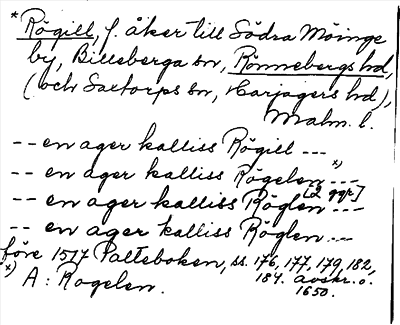 * Rögill, f. åker till Södra Möinge
by, Billeberga sn, Rönnebergs hd,
(och Saxtorps sn, Harjagers hd),
Malm. l.
-- en ager kalliss Rögill ---
-- en ager kalliss Rögelen x) ---
-- en ager kalliss Röglen [2 ggr] ---
-- en ager kalliss Röglen ---
före 1517 Palteboken, ss. 176, 177, 179, 182,
184. avskr. o.
1650.
x) A: Rogelen.